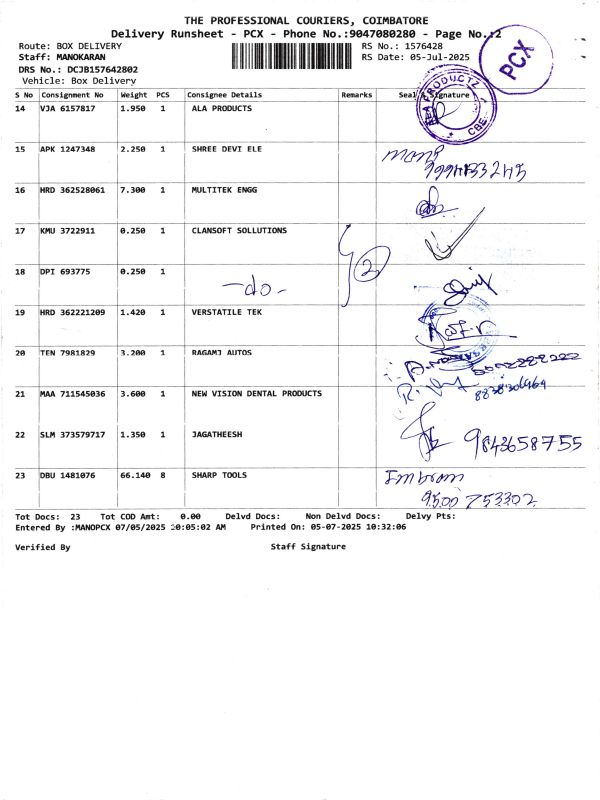 THE PROFESSIONAL COURIERS, COIMBATORE
Delivery Runsheet - PCX - Phone No.:9047080280 - Page No.:2
Route: BOX DELIVERY
RS No.: 1576428
Staff: MANOKARAN
RS Date: 05-Jul-2025
DRS No.: DCJB157642802
Vehicle: Box Delivery
PCX
S No Consignment No Weight PCS Consignee Details Remarks Seal & Signature
14 VJA 6157817 1.950 1 ALA PRODUCTS
CBE
15 APK 1247348 2.250 1 SHREE DEVI ELE
16 HRD 362528061 7.300 1 MULTITEK ENGG
17 KMU 3722911 0.250 1 CLANSOFT SOLLUTIONS
2
18 DPI 693775 0.250 1 -do-
19 HRD 362221209 1.420 1 VERSTATILE TEK
20 TEN 7981829 3.200 1 RAGAMJ AUTOS
21 MAA 711545036 3.600 1 NEW VISION DENTAL PRODUCTS
22 SLM 373579717 1.350 1 JAGATHEESH 9843658755
23 DBU 1481076 66.140 8 SHARP TOOLS Imbram
9500753302
Tot Docs: 23 Tot COD Amt: 0.00 Delvd Docs: Non Delvd Docs: Delvy Pts:
Entered By :MANOPCX 07/05/2025 10:05:02 AM Printed On: 05-07-2025 10:32:06
Verified By Staff Signature